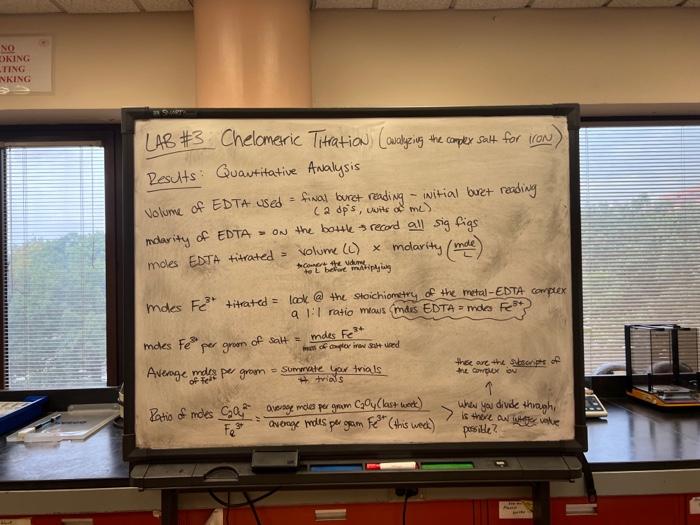 NO
OKING
TING
NKING
SMART
LAB #3 Chelometric Titration (analyzing the complex salt for IRON)
Results: Quantitative Analysis
Volume of EDTA used = final buret reading - initial buret reading
(2 dp's, units of mL)
molarity of EDTA = on the bottle → record all sig figs
moles EDTA titrated = volume (L) × molarity (mole/L)
*convert the volume
to L before multiplying
moles Fe³⁺ titrated = look @ the stoichiometry of the metal-EDTA complex
a 1:1 ratio means moles EDTA = moles Fe³⁺
moles Fe³⁺ per gram of salt = moles Fe³⁺ / mass of complex iron salt used
Average moles per gram = summate your trials / # trials
of Fe³⁺
these are the subscripts of
the complex ion
↑
Ratio of moles C₂O₄²⁻ / Fe³⁺ = average moles per gram C₂O₄ (last week) / average moles per gram Fe³⁺ (this week) >
when you divide through,
is there an integer value
possible?